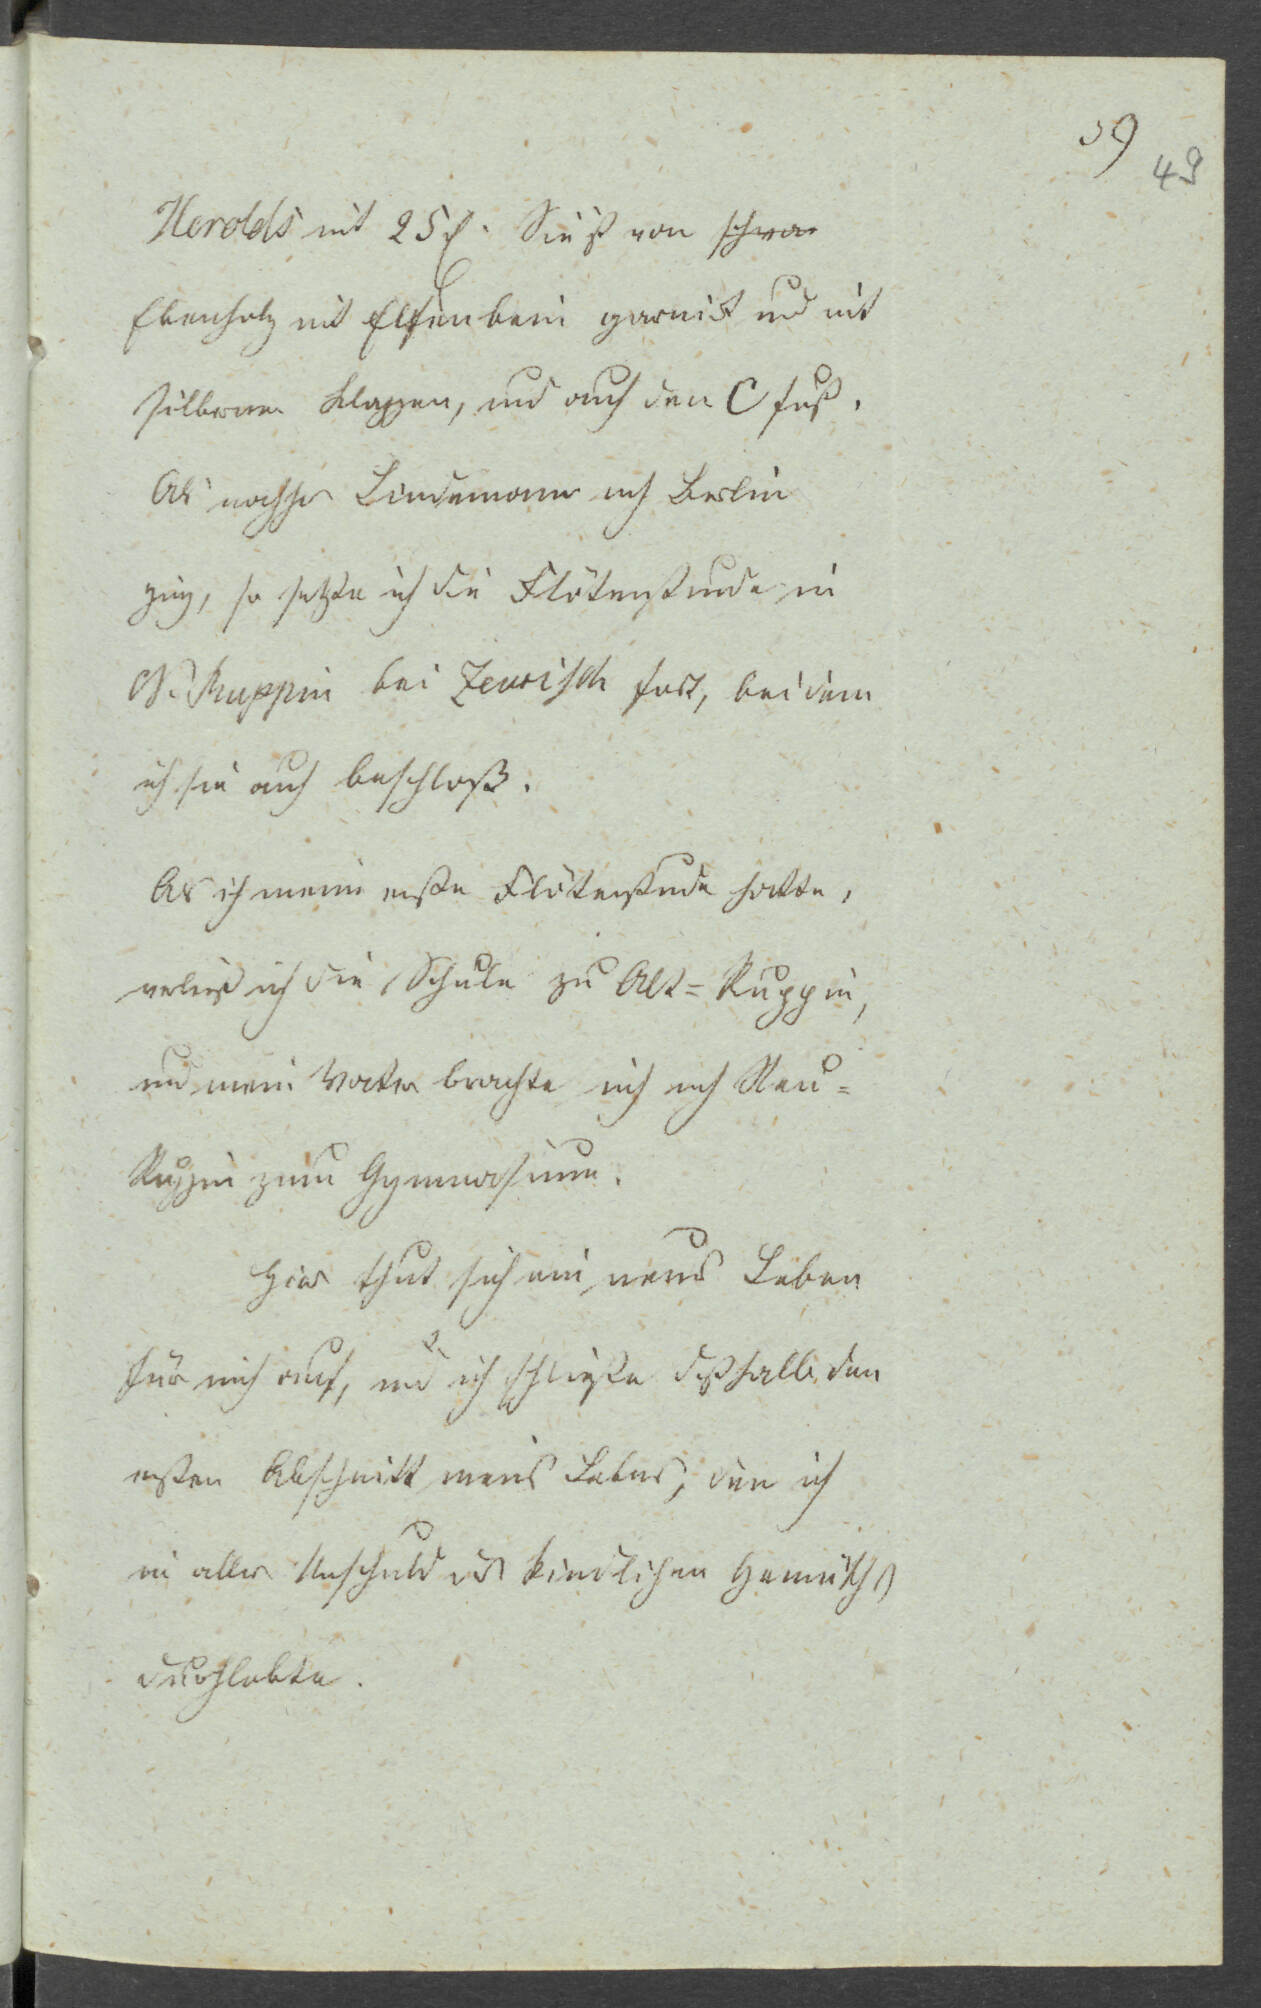 59
49
Herolds mit 25 rh. Sie ist von schwar
Ebenholz mit Elfenbein garnirt und mit
silbernen Klappen, und auch den C fuß.
Als nachher Lindemann nach Berlin
ging, so setzte ich die Flötenstunde in
N. Ruppin bei Zewisch fort, bei dem
ich sie auch beschloß.
Als ich meine erste Flötenstunde hatte,
verließ ich die Schule zu Alt=Ruppin,
und mein Vater brachte mich nach Neu=
Ruppin zum Gymnasium.
Hier thut sich ein neues Leben
für mich auf, und ich schließe deßhalb den
ersten Abschnitt meines Lebens, den ich
in aller Unschuld des kindlichen Gemüths
durchlebte.